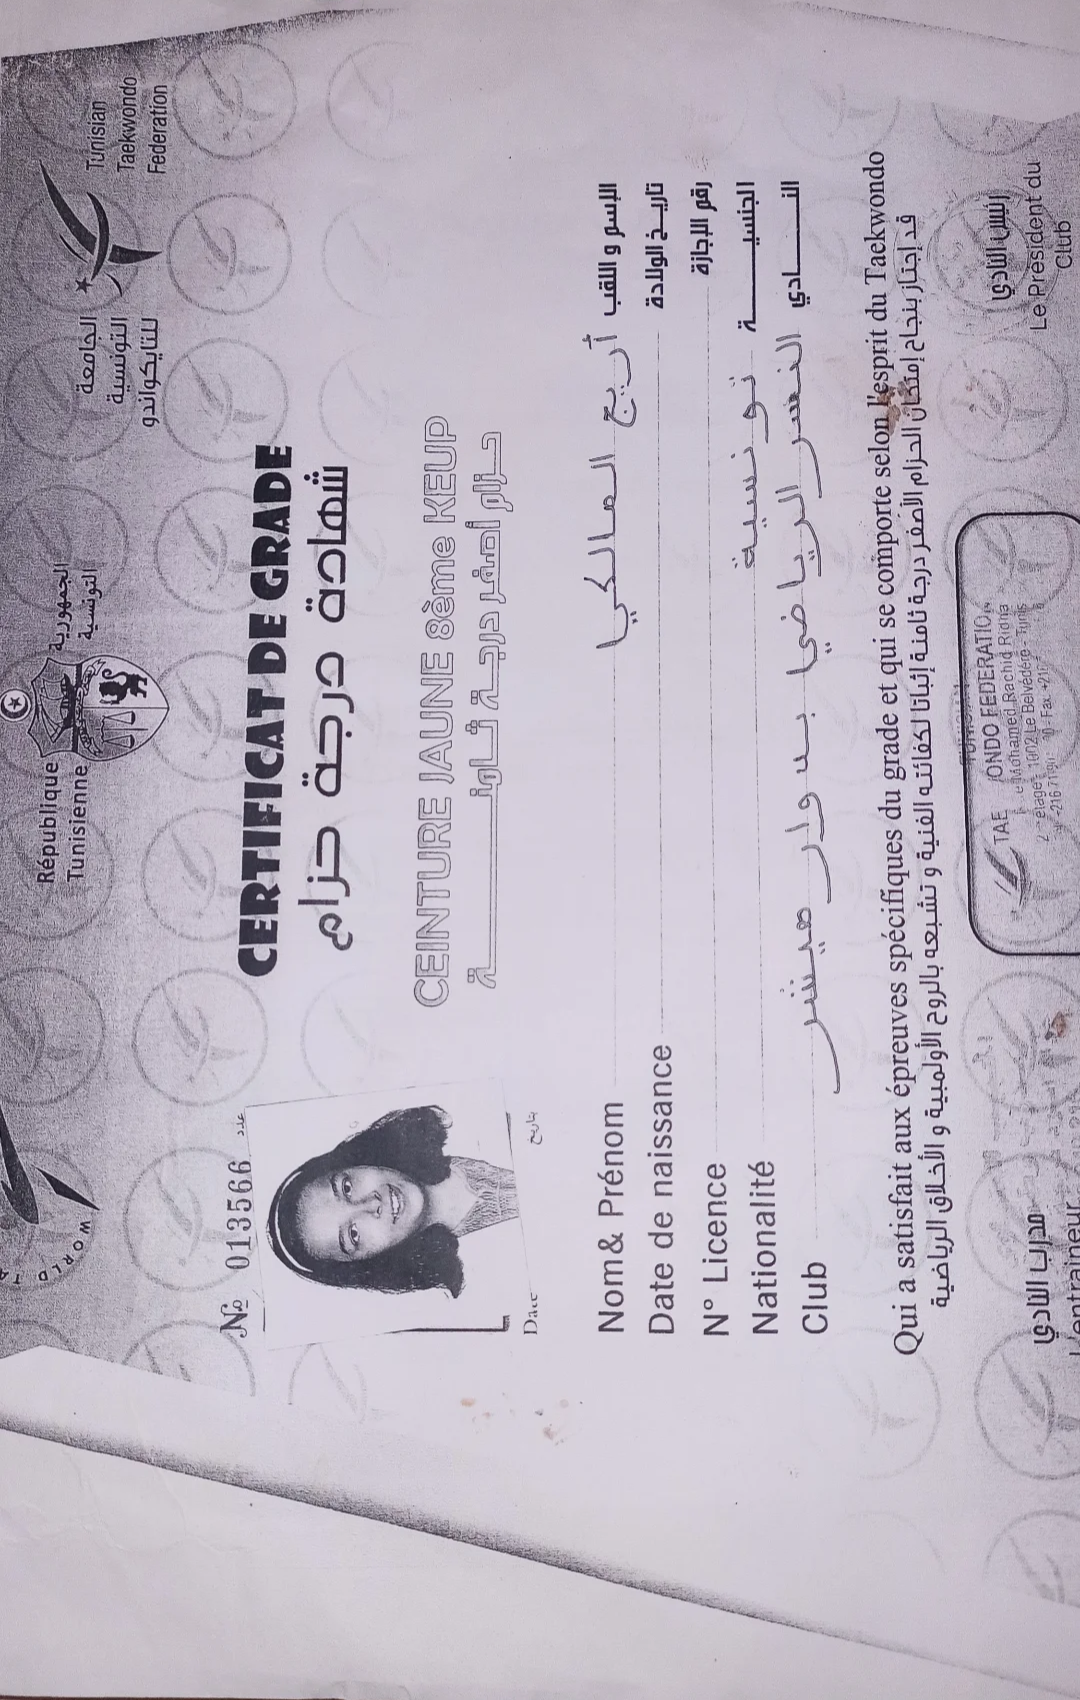 République
Tunisienne
الجمهورية
التونسية
الجامعة
التونسية
للتايكواندو
Tunisian
Taekwondo
Federation
WORLD TA
№ 013566 عدد
CERTIFICAT DE GRADE
شهادة درجة حزام
CEINTURE JAUNE 8ème KEUP
حزام أصفر درجة ثامنة
Date
بتاريخ
Nom& Prénom أريج المالكي الإسم و اللقب
Date de naissance تاريخ الولادة
N° Licence رقم الإجازة
Nationalité تونسية الجنسية
Club النسر الرياضي بدوار هيشر النادي
Qui a satisfait aux épreuves spécifiques du grade et qui se comporte selon l'esprit du Taekwondo
قد إجتاز بنجاح إمتحان الحزام الأصفر درجة ثامنة إثباتا لكفائته الفنية و تشبعه بالروح الأولمبية و الأخلاق الرياضية
مدرب النادي
L'entraineur
TAE ONDO FEDERATIO
Mohamed Rachid Ridha
2 étage 1002 Le Belvédère Tunis
Fax +216
رئيس النادي
Le Président du
Club